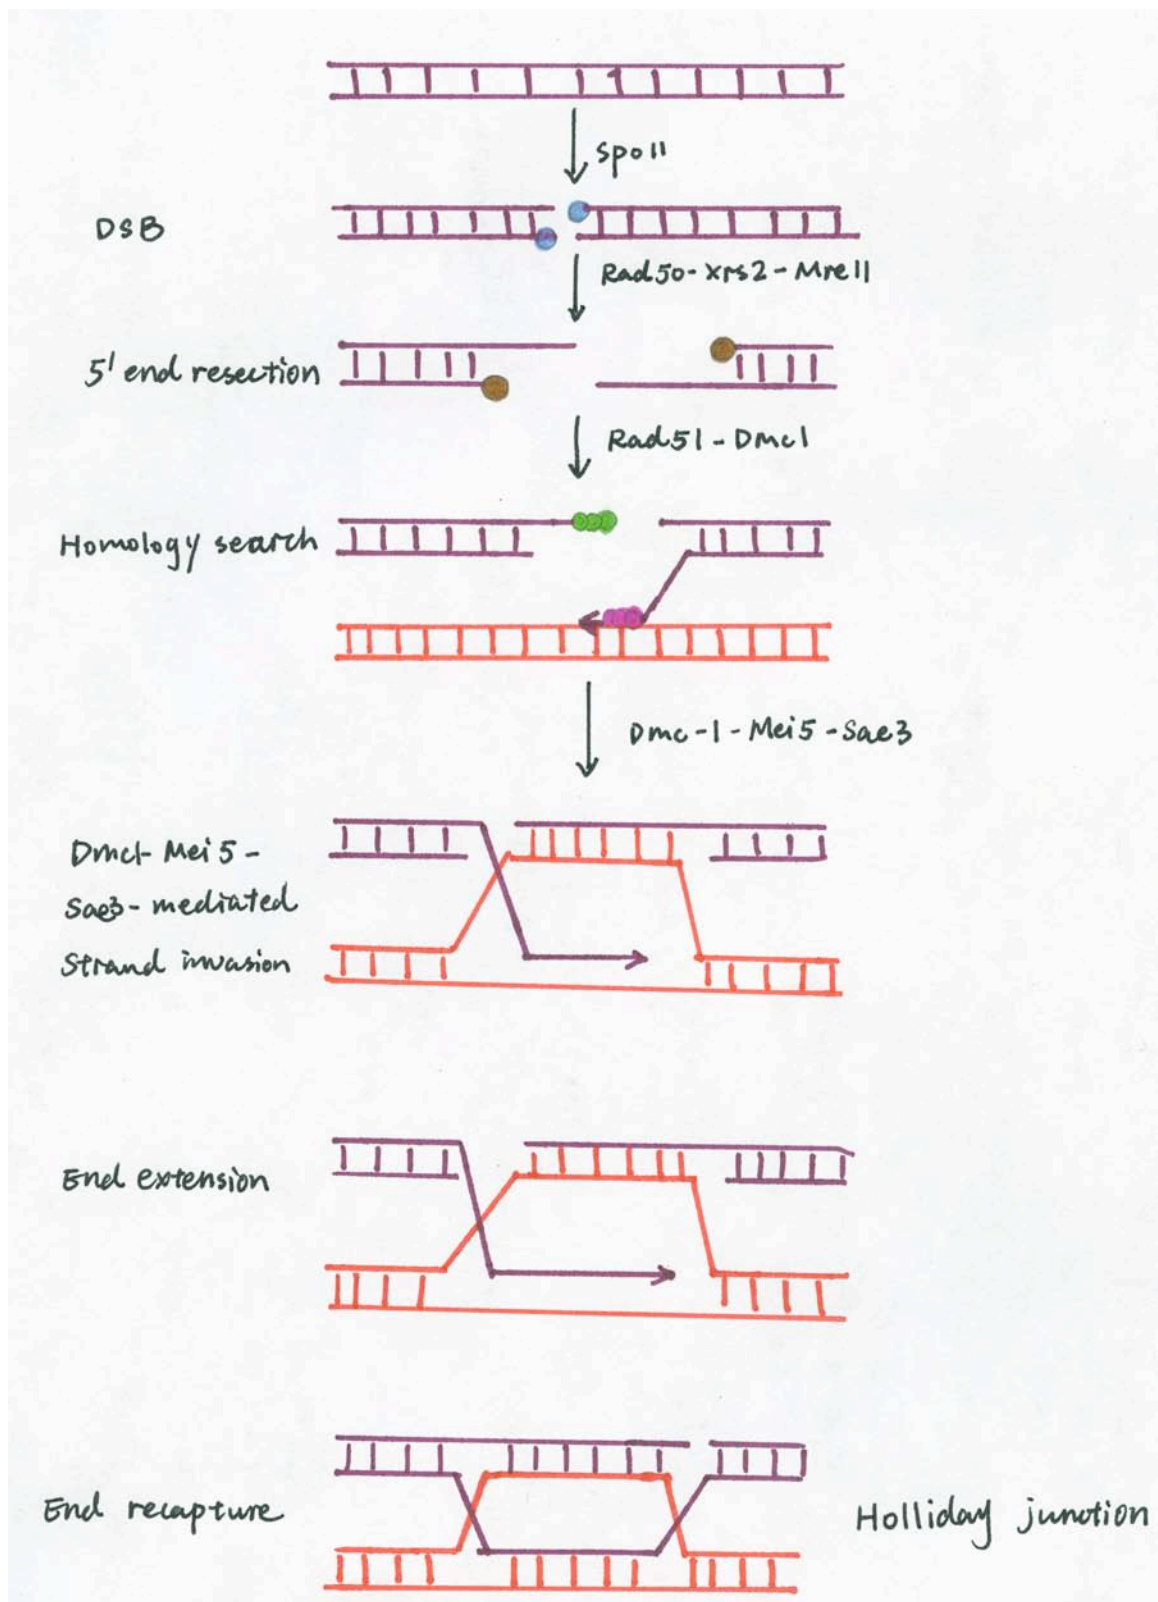 Spo11
DSB
Rad50-Xrs2-Mre11
5' end resection
Rad51-Dmc1
Homology search
Dmc-1-Mei5-Sae3
Dmc1-Mei5-
Sae3-mediated
Strand invasion
End extension
End recapture
Holliday junction